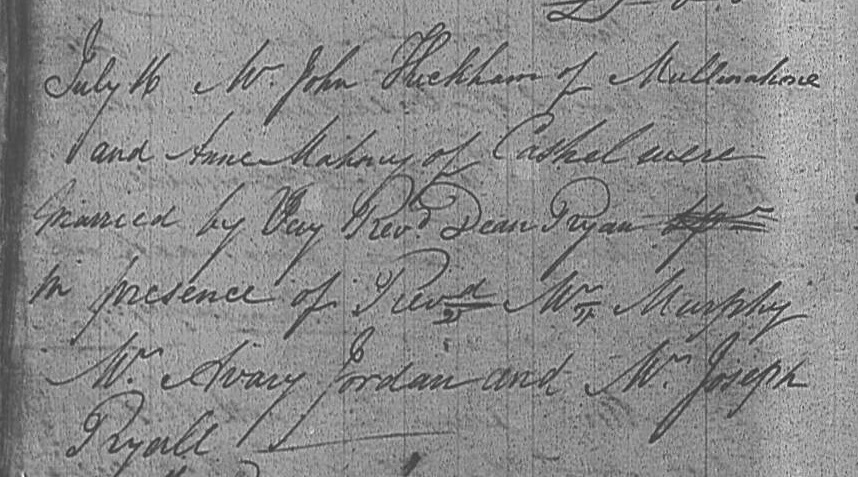 July 16 Mr. John Huckham of Mullinahone
and Anne Mahony of Cashel were
married by Very Revd. Dean Ryan
in presence of Revd. Mr. Murphy
Mr. Avary Jordan and Mr. Joseph
Ryall